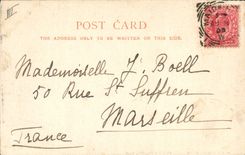 POST CARD.
THE ADDRESS ONLY TO BE WRITTEN ON THIS SIDE.
Mademoiselle J. Boell
50 Rue St Suffren
Marseille
France